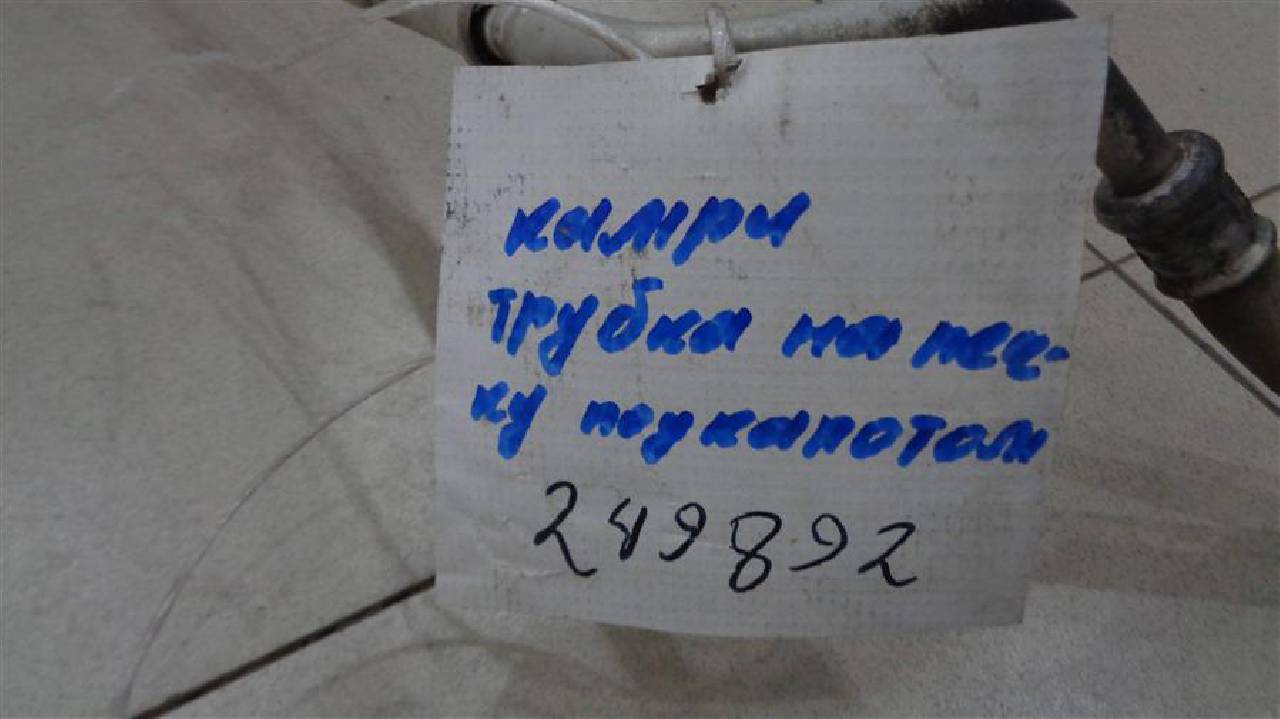 камри
трубка на печ-
ку под капотом
249892